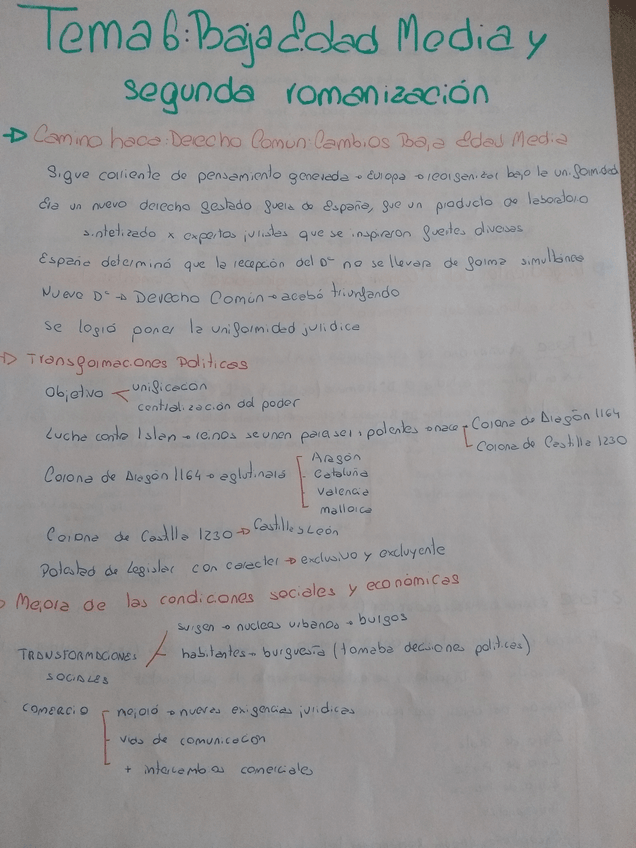 Tema 6: Baja Edad Media y
segunda romanización
→ Camino hacia Derecho Comun: Cambios Baja Edad Media
Sigue corriente de pensamiento generada → Europa → reorganizar bajo la uniformidad
Era un nuevo derecho gestado fuera de España, fue un producto de laboratorio
sintetizado x expertos juristas que se inspiraron fuentes diversas
España determinó que la recepción del Dº no se llevara de forma simultánea
Nuevo Dº → Derecho Común → acabó triunfando
se logró poner la uniformidad jurídica
→ Transformaciones Políticas
Objetivo < unificación
centralización del poder
Lucha contra Islan → reinos se unen para ser + potentes → nace [ Corona de Aragón 1164
Corona de Castilla 1230
Corona de Aragón 1164 → aglutinará [ Aragón
Cataluña
Valencia
Mallorca
Corona de Castilla 1230 → Castilla y León
Potestad de Legislar con carácter → exclusivo y excluyente
→ Mejora de las condiciones sociales y económicas
surgen → nucleos urbanos → burgos
TRANSFORMACIONES habitantes → burguesía (tomaba decisiones políticas)
SOCIALES
COMERCIO [ mejoró → nuevas exigencias jurídicas
vías de comunicación
+ intercambios comerciales